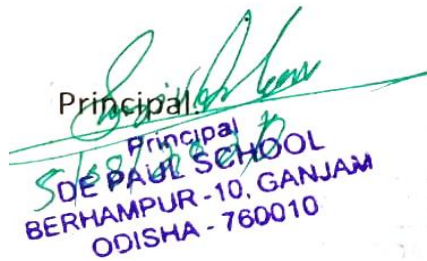 Principal.
Principal
DE PAUL SCHOOL
BERHAMPUR - 10, GANJAM
ODISHA - 760010